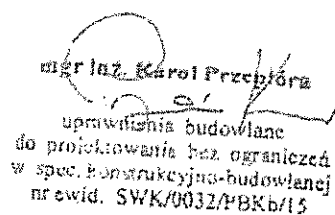 mgr inż. Karol Przepióra
uprawnienia budowlane
do projektowania bez ograniczeń
w spec. konstrukcyjno-budowlanej
nr ewid. SWK/0032/PBKb/15